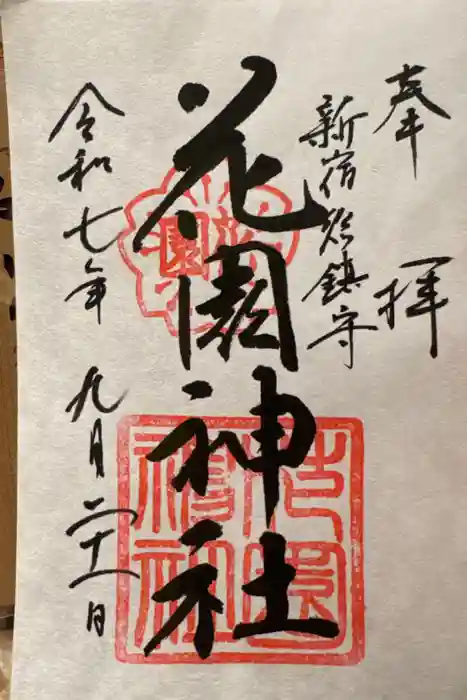 奉拝
新宿総鎮守
花園神社
令和七年九月二十一日
花園
神社